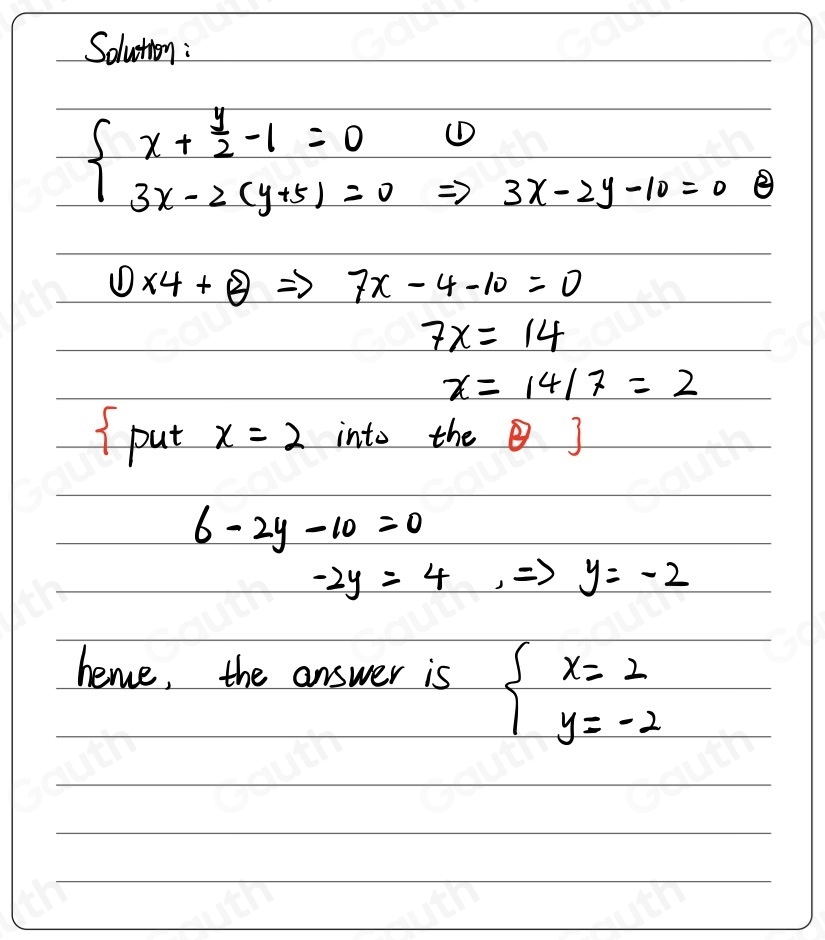 Solution:
{ x + y/2 - 1 = 0 ①
3x - 2(y+5) = 0 => 3x - 2y - 10 = 0 ②
①×4 + ② => 7x - 4 - 10 = 0
7x = 14
x = 14/7 = 2
{ put x = 2 into the ② }
6 - 2y - 10 = 0
-2y = 4 , => y = -2
hence, the answer is { x = 2
y = -2